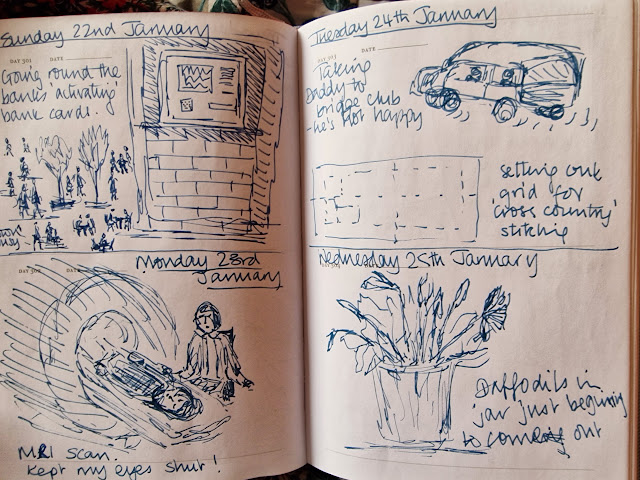 Sunday 22nd January
DAY 501 DATE
Going round the
banks 'activating'
bank cards.
Monday 23rd
January
DAY 502 DATE
MRI scan.
Kept my eyes shut!
Tuesday 24th January
DATE
Taking
Daddy to
bridge club
- he's not happy
setting out
grid for
'cross country'
stitching
Wednesday 25th January
Daffodils in
jar just beginning
to come out